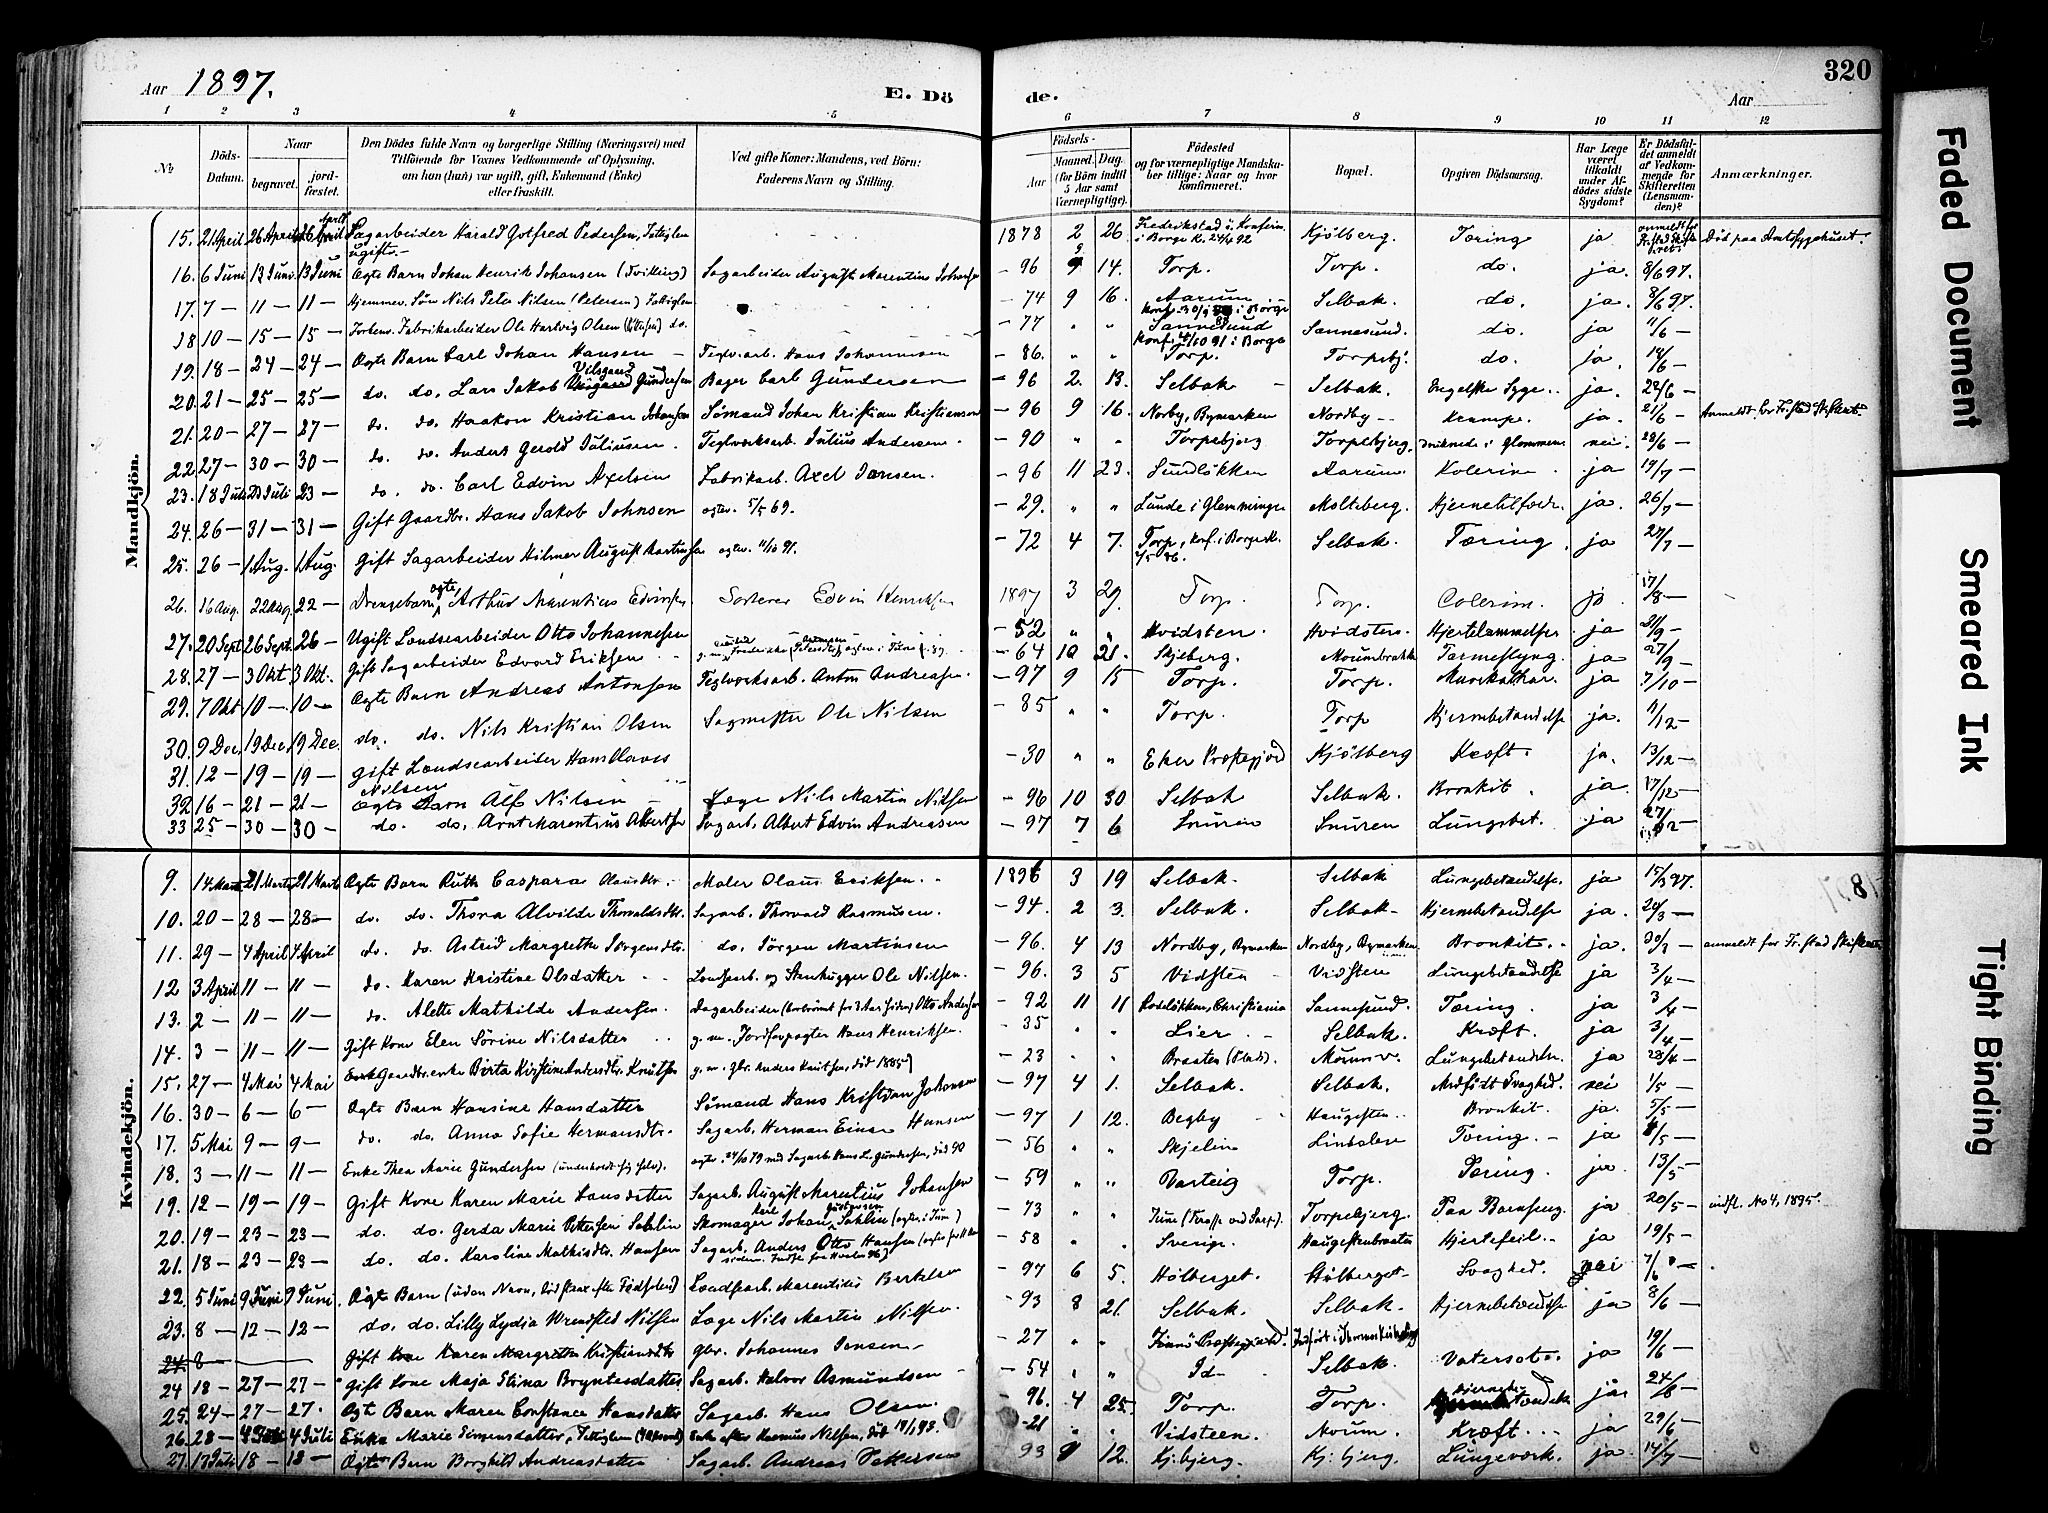 Aar 1897. E. Dö de. Aar 320
1 2 3 4 5 6 7 8 9 10 11 12
No
Döds-Datum.
Naar begravet. jordfæstet.
Den Dödes fulde Navn og borgerlige Stilling (Næringsvei) med Tilföiende for Voxnes Vedkommende af Oplysning, om han (hun) var ugift, gift, Enkemand (Enke) eller fraskilt.
Ved gifte Koner: Mandens, ved Börn: Faderens Navn og Stilling.
Födsels- Aar Maaned. Dag. (for Börn indtil 5 Aar samt Værnepligtige).
Födested og for værnepligtige Mandskaber tillige: Naar og hvor konfirmeret.
Bopæl.
Opgiven Dödsaarsag.
Har Læge været tilkaldt under Afdödes sidste Sygdom?
Er Dödsfaldet anmeldt af Vedkommende for Skifteretten (Lensmanden)?
Anmærkninger.
Mandkjön.
15. 21 April 26 April 26 April Sagarbeider Harald Gotfred Pedersen, ugift. 1878 2 26 Fredrikstad Konfirm. i Borge K. Kjölberg. Tæring ja Död paa Amtssygehuset.
16. 6 Juni 13 Juni 13 Juni Ægte Barn Johan Henrik Johansen (Tvilling) Sagarbeider August Marentius Johansen – 96 9 14. Torp. Torp. do. ja. 8/6 97.
17. 7 – 11 – 11 – Hjemmev. Søn Nils Peter Nilsen (Petersen) – 74 9 16. Aarum Selbak do. ja. 8/6 97.
18 10 – 15 – 15 – Fabrikarbeider Ole Hartvig Olsen do. – 77 " " Sannesund Konf. i Borge Sannesund. do. ja
19. 18 – 24 – 24 – Ægte Barn Carl Johan Hansen Teglv.arb. Hans Johannesen – 86. " " Torp. Torpebj. do. ja.
20. 21 – 25 – 25 – do. do. Lars Jakob Gundersen Bager Carl Gundersen – 96 2. 13. Selbak Selbak. Engelske Syge. ja. 22/6 –
21. 20 – 27 – 27 – do. do. Haakon Kristian Johansen Sømand Johan Kristian Kristiansen – 96 9 16. Norby, Bymarken Nordby – Krampe. ja. 21/6 –
22 27 – 30 – 30 – do. do. Anders Gerold Juliusen. Teglværksarb. Julius Andersen. – 90 " " Torpebjerg Torpebjerg. Druknede i Glommen. nei
23. 18 Juli 23 Juli 23 – do. do. Carl Edvin Axelsen Fabrikarb. Axel Jansen. – 96 11 23. Sundløkken Aarum. Kolerine. ja 19/7 –
24. 26 – 31 – 31 – Gift Gaardbr. Hans Jakob Johnsen ægtev. 5/5 69. – 29. " " Lunde i Glemminge Molteberg. ja. 26/7 –
25. 26 – 1 Aug. 1 Aug. Gift Sagarbeider Hilmer August – 72 4 7. Torp, konf. i Borge K. Selbak. Tæring. ja 27/7 –
26. 16 Aug. 22 Aug 22 – Drengebarn, ægte, Arthur Marentius Edvinsen Sorterer Edvin Henriksen 1897 3 29. Torp. Torp. Colerine. ja 17/8 –
27. 20 Sept 26 Sept. 26 – Ugift Landsearbeider Otto Johannesen – 52 " " Hvidsten. Hvidsten. Hjertelammelse ja
28. 27 – 3 Okt 3 Okt. Gift Sagarbeider Edvard Eriksen – 64 10 21. Skjeberg. Tarmeslyng. ja 27/9 –
29. 7 Okt 10 – 10 – Ægte Barn Andreas Antonsen Teglværksarb. Anton Andreasen. – 97 9 15 Torp. Torp. ja 7/10 –
30. 9 Dec. 19 Dec. 19 Dec. do. do. Nils Kristian Olsen Sagmester Ole Nilsen – 85 " " Torp. Torp Hjernebetændelse ja. 11/12 –
31. 12 – 19 – 19 – Gift Landsearbeider Hans Olaves Nilsen – 30 " " Eker Præstegjeld Kjölberg Kræft. ja. 13/12 –
32 16 – 21 – 21 – Ægte Barn Alf Nilsen Læge Nils Martin Nilsen – 96 10 30 Selbak Selbak. Bronkit. ja. 17/12 –
33 25 – 30 – 30 – do. do. Arnt Marentius Albertsen Sagarb. Albert Edvin Andreasen – 97 7 6 Snuren Snuren Lungebet. ja
Kvindekjön.
9. 14 Marts 21 Marts 21 Marts Ægte Barn Ruth Caspara Olausdtr. Maler Olaus Eriksen. 1896 3 19 Selbak. Selbak Lungebetændelse. ja 15/3 97.
10. 20 – 28 – 28 – do. do. Thora Alvilde Thorvaldsdtr. Sagarb. Thorvald Rasmusen. – 94. 2 3. Selbak. Selbak – Hjernebetændelse ja.
11. 29 – 4 April 4 April do. do. Astrid Margrethe Jørgensdtr. do. Jørgen Martinsen – 96. 4 13 Nordby, Bymarken Nordby, Bymarken Bronkit. ja. 30/3 – anmeldt for Fr.stad
12 3 April 11 – 11 – do. Karen Kristine Olsdatter Landsarb. og Stenhugger Ole Nilsen. – 96. 3 5 Vidsten Vidsten Lungebetændelse ja 3/4 –
13. 2 – 11 – 11 – do. Alette Mathilde Andersen. Sagarbeider Otto Andersen – 92 11 11 Rodeløkken, Christiania Sannesund. Tæring. ja 3/4 –
14. 3 – 11 – 11 – Gift Kone Elen Sørine Nilsdatter g.m. Hans Henriksen. – 35 " " Lier – Selbak. Kræft. ja 3/4 –
15. 27 – 4 Mai 4 Mai Gaardbr.enke Birta Kirstine Andersdtr. Knutsen g.m. Gbr. Anders Knutsen, död 1885) – 23 Braaten Lungebetændelse. ja 28/4 –
16. 30 – 6 – 6 – Ægte Barn Hansine Hansdatter Sømand Hans Kristian Johansen – 97 4 1. Selbak. Selbak. Medfödt Svaghed. nei 1/5 –
17. 5 Mai 9 – 9 – do. do. Anna Sofie Hermansdtr. Sagarb. Herman Einar Hansen – 97 1 12. Begby Haugesten. Bronkit. ja. 5/5 –
18. 3 – 11 – 11 – Enke Thea Marie Gundersen (underholdt sig selv). – 56 " " Skjelin Tæring. – ja
19. 12 – 19 – 19 – Gift Kone Karen Marie Hansdatter Sagarb. August Marentius Johansen – 59 " " Varteig Torp. Tæring. ja 13/5 –
20. 19 – 23 – 23 – do. do. Gerda Marie Pettersen Sahlin Skomager Johan Sahlin – 73 " " Torpebjerg. Paa Barnseng. ja 20/5 – indfl. No 4, 1895.
21. 18 – 23 – 23 – do. do. Karoline Mathisdtr. Hansen Sagarb. Anders Otto Hansen – 58 " " Sverige. Haugestenbraaten Hjertefeil. ja 19/5 –
22. 5 Juni 9 Juni 9 Juni. Ægte Barn (uden Navn, död strax efter Födselen) Landsearb. Marentius Bertelsen – 97 6 5. Hölberget. Hölberget – Svaghed. nei 7/6 –
23. 8 – 12 – 12 – do. do. Lilly Lydia Nilsen Læge Nils Martin Nilsen. – 93 8 21. Selbak. Selbak. Hjernebetændelse ja 8/6 –
24. 8 – Gift Kone Karen Margrethe Kristiansdtr gbr. Johannes Jensen – – 27 " "
24 18 – 27 – 27 – Gift Kone Maja Stina Bryntesdatter Sagarb. Halvor Asmundsen – 54 " " Id – Selbak. Vatersot. ja 19/6 –
25. 24 – 27 – 27. Ægte Barn Maren Constance Hansdatter Sagarb. Hans Olsen. – 96. 4 25. Torp. Torp. ja
26. 28 – 4 Juli 4 Juli Enke Marie Simensdatter, Enke efter Rasmus Nilsen, död – 21 Vidsteen. Moum. Kræft. ja 29/6 –
27. 13 Juli 18 – 18 – Ægte Barn Borghild Andreasdatter Sagarb. Andreas Pettersen 93 12. Kj:bjerg. Kj:bjerg. Lungeværk. ja. 14/7 –
Faded Document
Smeared Ink
Tight Binding